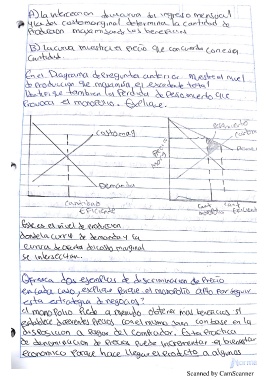 A) la interseccion de la curva de ingreso marginal
y la del costo marginal determina la cantidad de
Produccion maximizando los beneficios
B) la curva muestra el precio que concuerda con esa
Cantidad.
En el Diagrama de la Pregunta anterior. Muestre el nivel
de Produccion que maximiza el excedente total
Identifique tambien la Perdida de Peso muerto que
Provoca el monopolio. Explique.
costo mag
Demanda
cantidad
EFiciente
costo
Demanda
cant
cant
Eficiente
Este es el nivel de produccion
donde la curva de demanda y la
curva de costo marginal
se intersectan.
Ofrezca dos ejemplos de discriminacion de Precio
en cada caso, explique Porque el monopolio opta Por seguir
esta estrategia de negocios?
el monopolio Puede a menudo obtener mas beneficios si
establece diferentes Precios con el mismo bien con base en la
disposicion a pagar del comprador. Esta Practica
de discriminacion de Precios puede incrementar el bienestar
economico Porque hace llegar el Producto a algunos
Scanned by CamScanner